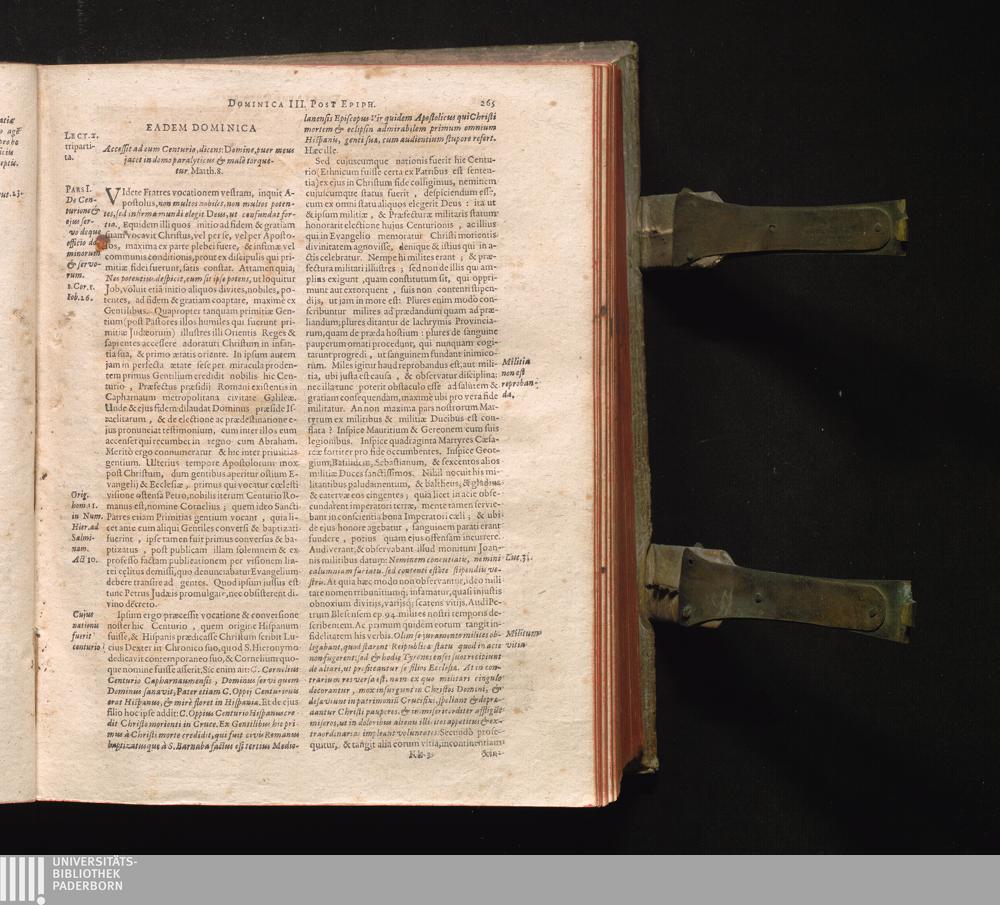 DOMINICA III. POST EPIPH. 265
EADEM DOMINICA
LECT. X.
triparti-
ta.
Accessit ad eum Centurio, dicens: Domine, puer meus
jacet in domo paralyticus & malè torque-
tur. Matth. 8.
PARS I.
De Cen-
turione &
ejus ser-
vo deque
officio do-
minorum
& servo-
rum.
1. Cor. 1.
Iob. 26.
VIdete Fratres vocationem vestram, inquit A-
postolus, non multos nobiles, non multos poten-
tes, sed infirma mundi elegit Deus, ut confundat for-
tia. Equidem illi quos initio ad fidem & gratiam
suam vocavit Christus, vel per se, vel per Aposto-
los, maxima ex parte plebei fuere, & infimæ vel
communis conditionis, prout ex discipulis qui pri-
mitiæ fidei fuerunt, satis constat. Attamen quia,
Nec potentius despicit, cum sit ipse potens, ut loquitur
Job, voluit etiā initio aliquos divites, nobiles, po-
tentes, ad fidem & gratiam coaptare, maxime ex
Gentilibus. Quapropter tanquam primitiæ Gen-
tium (post Pastores illos humiles qui fuerunt pri-
mitiæ Judæorum) illustres illi Orientis Reges &
sapientes accessere adoraturi Christum in infan-
tia sua, & primo ætatis oriente. In ipsum autem
jam in perfecta ætate sese per miracula proden-
tem primus Gentilium credidit nobilis hic Cen-
turio, Præfectus præsidij Romani existentis in
Capharnaum metropolitana civitate Galileæ.
Unde & ejus fidem dilaudat Dominus præside Is-
raelitarum, & de electione ac prædestinatione e-
jus pronunciat testimonium, cum inter illos eum
accenset qui recumbet in regno cum Abraham.
Meritò ergo connumeratur & hic inter primitias
gentium. Ulterius tempore Apostolorum mox
post Christum, dum gentibus aperitur ostium E-
vangelij & Ecclesiæ, primus qui vocatur cœlesti
Orig.
hom. 11.
in Num.
Hier. ad
Salmi-
nam.
Act 10.
visione ostensa Petro, nobilis iterum Centurio Ro-
manus est, nomine Cornelius; quem ideo Sancti
Patres etiam Primitias gentium vocant, quia li-
cet ante cum aliqui Gentiles conversi & baptizati
fuerint, ipse tamen fuit primus conversus & ba-
ptizatus, post publicam illam solemnem & ex
professo factam publicationem per visionem lin-
tei cęlitus demissi, quo denunciabatur Evangelium
debere transire ad gentes. Quod ipsum jussus est
tunc Petrus Judæis promulgare, nec obsisterent di-
vino decreto.
Cujus
nationis
fuerit
centurio
Ipsum ergo præcessit vocatione & conversione
noster hic Centurio, quem origine Hispanum
fuisse, & Hispanis prædicasse Christum scribit Lu-
cius Dexter in Chronico suo, quod S. Hieronymo
dedicavit contemporaneo suo, & Cornelium quo-
que nomine fuisse asserit. Sic enim ait: C. Cornelius
Centurio Capharnaumensis, Dominus servi quem
Dominus sanavit, Pater etiam C. Oppij Centurionis
erat Hispanus, & mirè floret in Hispania. Et de ejus
filio hoc ipse addit: C. Oppius Centurio Hispanus cre-
dit Christo morienti in Cruce. Ex Gentilibus hic pri-
mus à Christi morte credidit, qui fuit civis Romanus
baptizatusque à S. Barnaba factus est tertius Medio-
lanensis Episcopus Vir quidem Apostolicus qui Christi
mortem & eclipsin admirabilem primum omnium
Hispanis, genti suæ, cum audientium stupore refert.
Hæc ille.
Sed cujuscumque nationis fuerit hic Centu-
rio (Ethnicum fuisse certa ex Patribus est senten-
tia) ex ejus in Christum fide colligimus, neminem
cujuscumque status fuerit, despiciendum esse,
cum ex omni statu aliquos elegerit Deus: ita ut
& ipsum militiæ, & Præfecturæ militaris statum
honorarit electione hujus Centurionis, ac illius
qui in Evangelio memoratur Christi morientis
divinitatem agnovisse, denique & istius qui in a-
ctis celebratur. Nempe hi milites erant; & præ-
fectura militari illustres; sed non de illis qui am-
plius exigunt, quam constitutum sit, qui oppri-
munt aut extorquent, suis non contenti stipen-
dijs, ut jam in more est: Plures enim modò con-
scribuntur milites ad prædandum quam ad præ-
liandum; plures ditantur de lachrymis Provincia-
rum, quam de præda hostium: plures de sanguine
pauperum ornati procedunt, qui nunquam cogi-
tarunt progredi, ut sanguinem fundant inimico-
Militia
non est
reproban-
da.
rum. Miles igitur haud reprobandus est, aut mili-
tia, ubi justa est causa, & observatur disciplina:
nec illa tunc poterit obstaculo esse ad salutem &
gratiam consequendam, maxime ubi pro vera fide
militatur. An non maxima pars nostrorum Mar-
tyrum ex militibus & militiæ Ducibus est con-
flata? Inspice Mauritium & Gereonem cum suis
legionibus. Inspice quadraginta Martyres Cæsa-
reæ fortiter pro fide occumbentes. Inspice Geor-
gium, Basilidem, Sebastianum, & sexcentos alios
militiæ Duces sanctissimos. Nihil nocuit his mi-
litantibus paludamentum, & baltheus, & gladius
& catervæ eos cingentes; quia licet in acie obse-
cundarent imperatori terræ, mente tamen servie-
bant in conscientia bona Imperatori cæli; & ubi
de ejus honore agebatur, sanguinem parati erant
fundere, potius quam ejus offensam incurrere.
Audiverant & observabant illud monitum Joan-
Luc. 3.
nis militibus datum: Neminem concutiatis, nemini
calumniam faciatis, sed contenti estote stipendiis ve-
stris. At quia hæc modo non observantur, ideo mili-
tare nomen tribunitiumq; infamatur, quasi injustis
obnoxium divitijs, varijsq; scatens vitijs. Audi Pe-
trum Blesensem ep. 94. milites nostri temporis de-
scribentem. Ac primum quidem eorum tangit in-
Militum
vitia
fidelitatem his verbis. Olim se juramento milites ob-
ligabant, quod starent Reipublicæ statu quod in acie
non fugerent; sed & hodie Tyrones enses suos recipiunt
de altari, ut profiteantur se filios Ecclesiæ. At in con-
trarium res versa est, nam ex quo militari cingulo
decorantur, mox insurgunt in Christos Domini, &
desæviunt in patrimonium Crucifixi, spoliant & depræ-
dantur Christi pauperes, & immisericorditer affligunt
miseros, ut in doloribus alienis illicitos appetitus & ex-
traordinarias impleant voluntates. Secundò prose-
quitur, & tangit alia eorum vitia, incontinentiam
Kk 3 & in-
UNIVERSITÄTS-
BIBLIOTHEK
PADERBORN